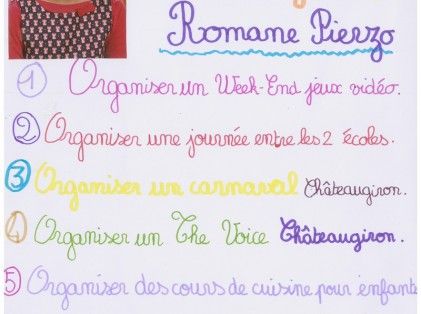 Romane Pierzo
1 Organiser un Week-End jeux vidéo.
2 Organiser une journée entre les 2 écoles.
3 Organiser un carnaval Châteaugiron.
4 Organiser un The Voice Châteaugiron.
5 Organiser des cours de cuisine pour enfants